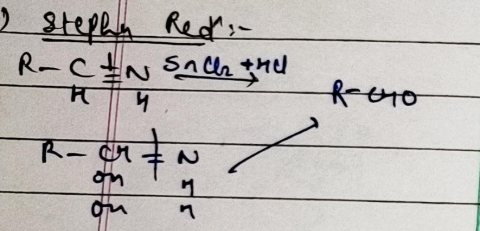 ) Stephen Redⁿ :-
R - C ≡ N SnCl₂ + HCl
H H
R - CHO
R - CH = N
OH H
OH H